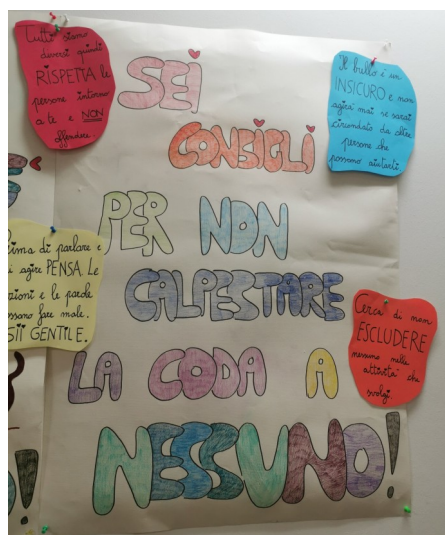 Tutti siamo
diversi quindi
RISPETTA le
persone intorno
a te e NON
offendere.
SEI
CONSIGLI
PER NON
CALPESTARE
LA CODA A
NESSUNO!
Il bullo è un
INSICURO e non
agirà mai se sarai
circondato da altre
persone che
possono aiutarti.
ima di parlare e
i agire PENSA. Le
zioni e le parole
ssano fare male.
SII GENTILE.
Cerca di non
ESCLUDERE
nessuno nelle
attività che
svolgi.
O!